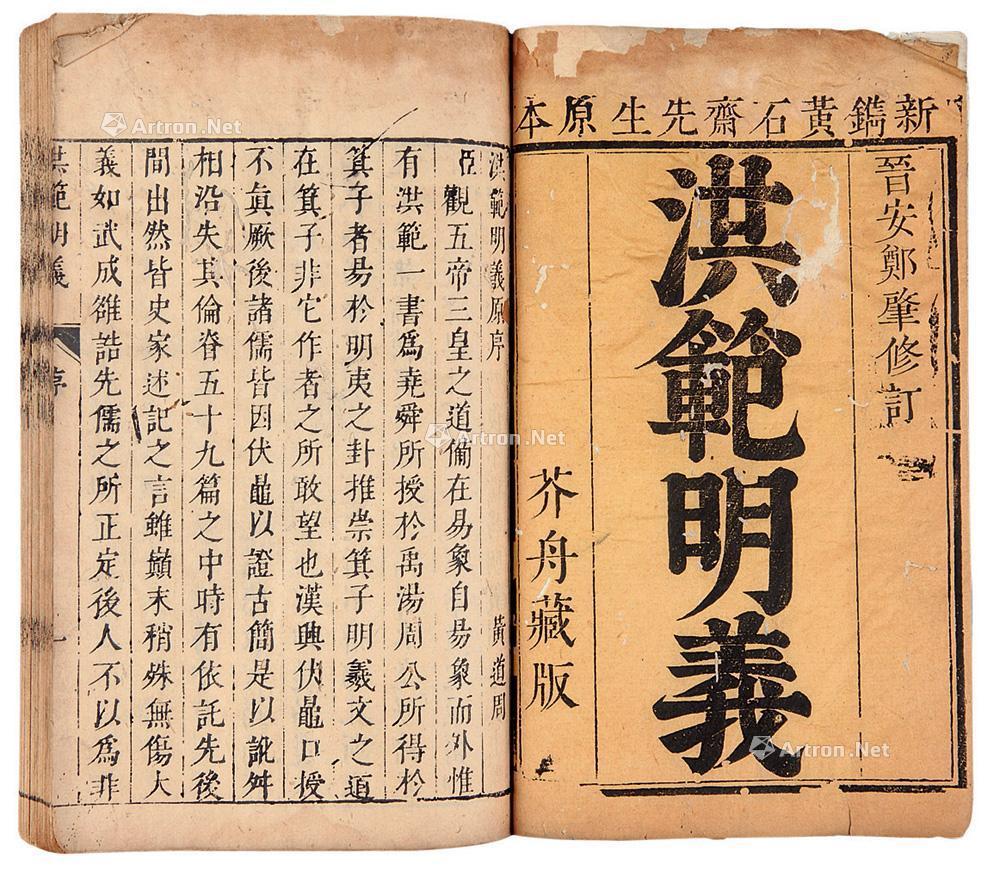 新鐫黃石齋先生原本
晉安鄭肇修訂
洪範明義
芥舟藏版
洪範明義原序 黃道周
亟觀五帝三皇之道備在易象自易象而外惟
有洪範一書為堯舜所授於禹湯周公所得於
箕子者易於明夷之卦推崇箕子明羲文之道
在箕子非它作者之所敢望也漢興伏黽口授
不真厥後諸儒皆因伏黽以證古簡是以訛舛
相沿失其倫脊五十九篇之中時有依託先後
間出然皆史家述記之言雖巔末稍殊無傷大
義如武成雒誥先儒之所正定後人不以為非
洪範明義 序 一
Artron.Net
Artron.Net
Artron.Net